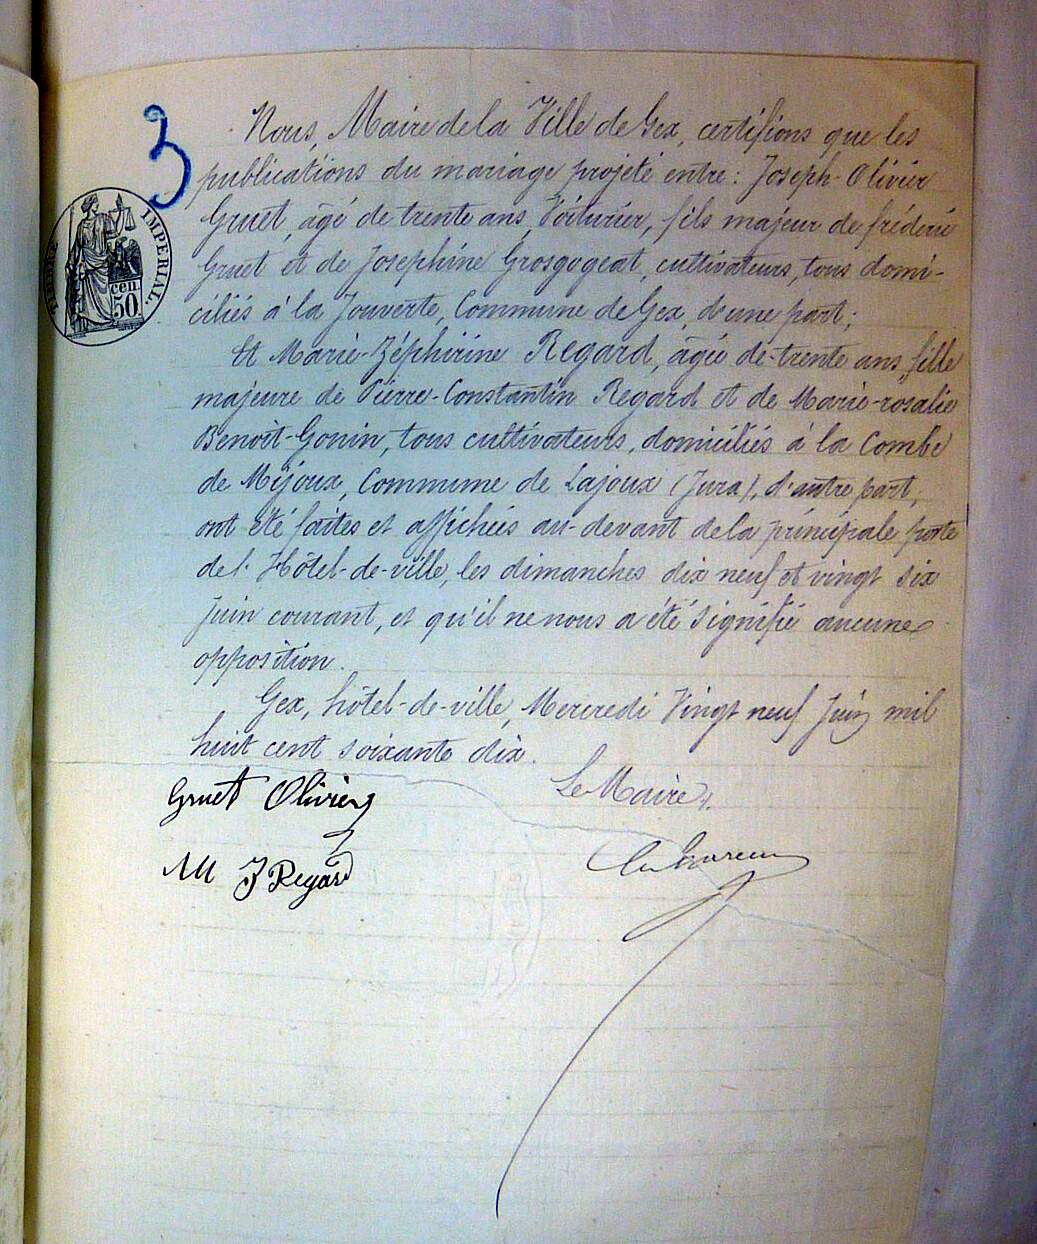 3
TIMBRE IMPERIAL.
cen.
50
Nous, Maire de la Ville de Gex, certifions que les
publications du mariage projeté entre : Joseph-Olivier
Gruet, âgé de trente ans, Voiturier, fils majeur de frédéric
Gruet et de Josephine Grosgogeat, cultivateurs, tous domi-
ciliés à la Jouverte, Commune de Gex, d'une part ;
Et Marie-Zéphirine Regard, âgée de trente ans, fille
majeure de Pierre-Constantin Regard et de Marie-rosalie
Benoit-Gonin, tous cultivateurs, domiciliés à la Combe
de Mijoux, Commune de Lajoux (Jura), d'autre part,
ont été faites et affichées au-devant de la principale porte
de l'Hôtel-de-ville, les dimanches dix neuf et vingt six
Juin courant, et qu'il ne nous a été signifié aucune
opposition.
Gex, hôtel-de-ville, Mercredi Vingt neuf Juin mil
huit cent soixante dix.
Le Maire,
Gruet Olivier
M J Regard